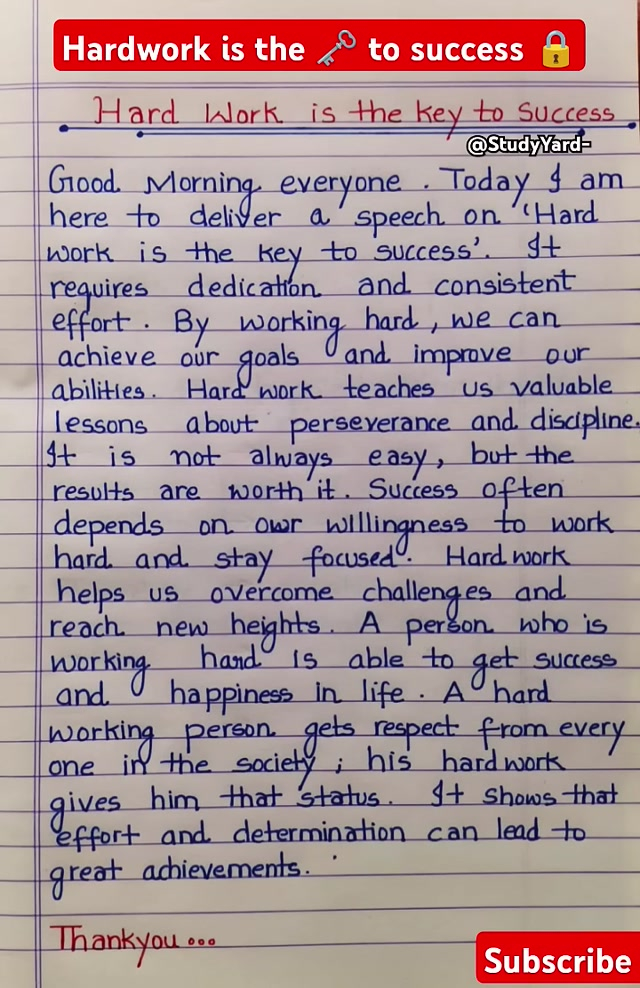 Hardwork is the 🗝️ to success 🔒
Hard Work is the key to Success
@StudyYard-
Good Morning everyone. Today I am
here to deliver a speech on 'Hard
work is the key to success'. It
requires dedication and consistent
effort. By working hard, we can
achieve our goals and improve our
abilities. Hard work teaches us valuable
lessons about perseverance and discipline.
It is not always easy, but the
results are worth it. Success often
depends on our willingness to work
hard and stay focused. Hard work
helps us overcome challenges and
reach new heights. A person who is
working hard is able to get success
and happiness in life. A hard
working person gets respect from every
one in the society; his hard work
gives him that status. It shows that
effort and determination can lead to
great achievements.
Thankyou...
Subscribe